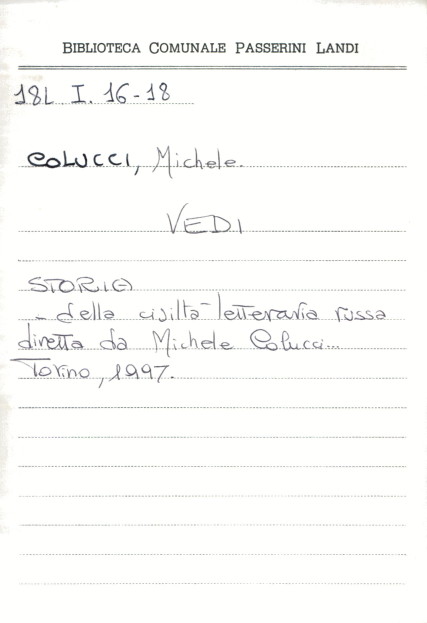 BIBLIOTECA COMUNALE PASSERINI LANDI
18L I. 16-18
COLUCCI, Michele.
VEDI
STORIA
- della civiltà letteraria russa
diretta da Michele Colucci...
Torino, 1997.